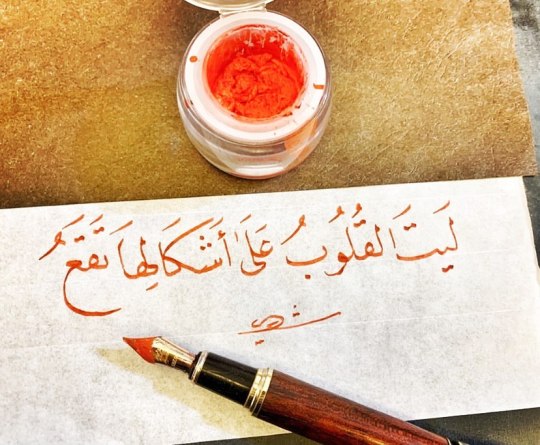 لَيتَ القُلُوبُ عَلَىٰ أَشكَالِهَا تَقَعُ